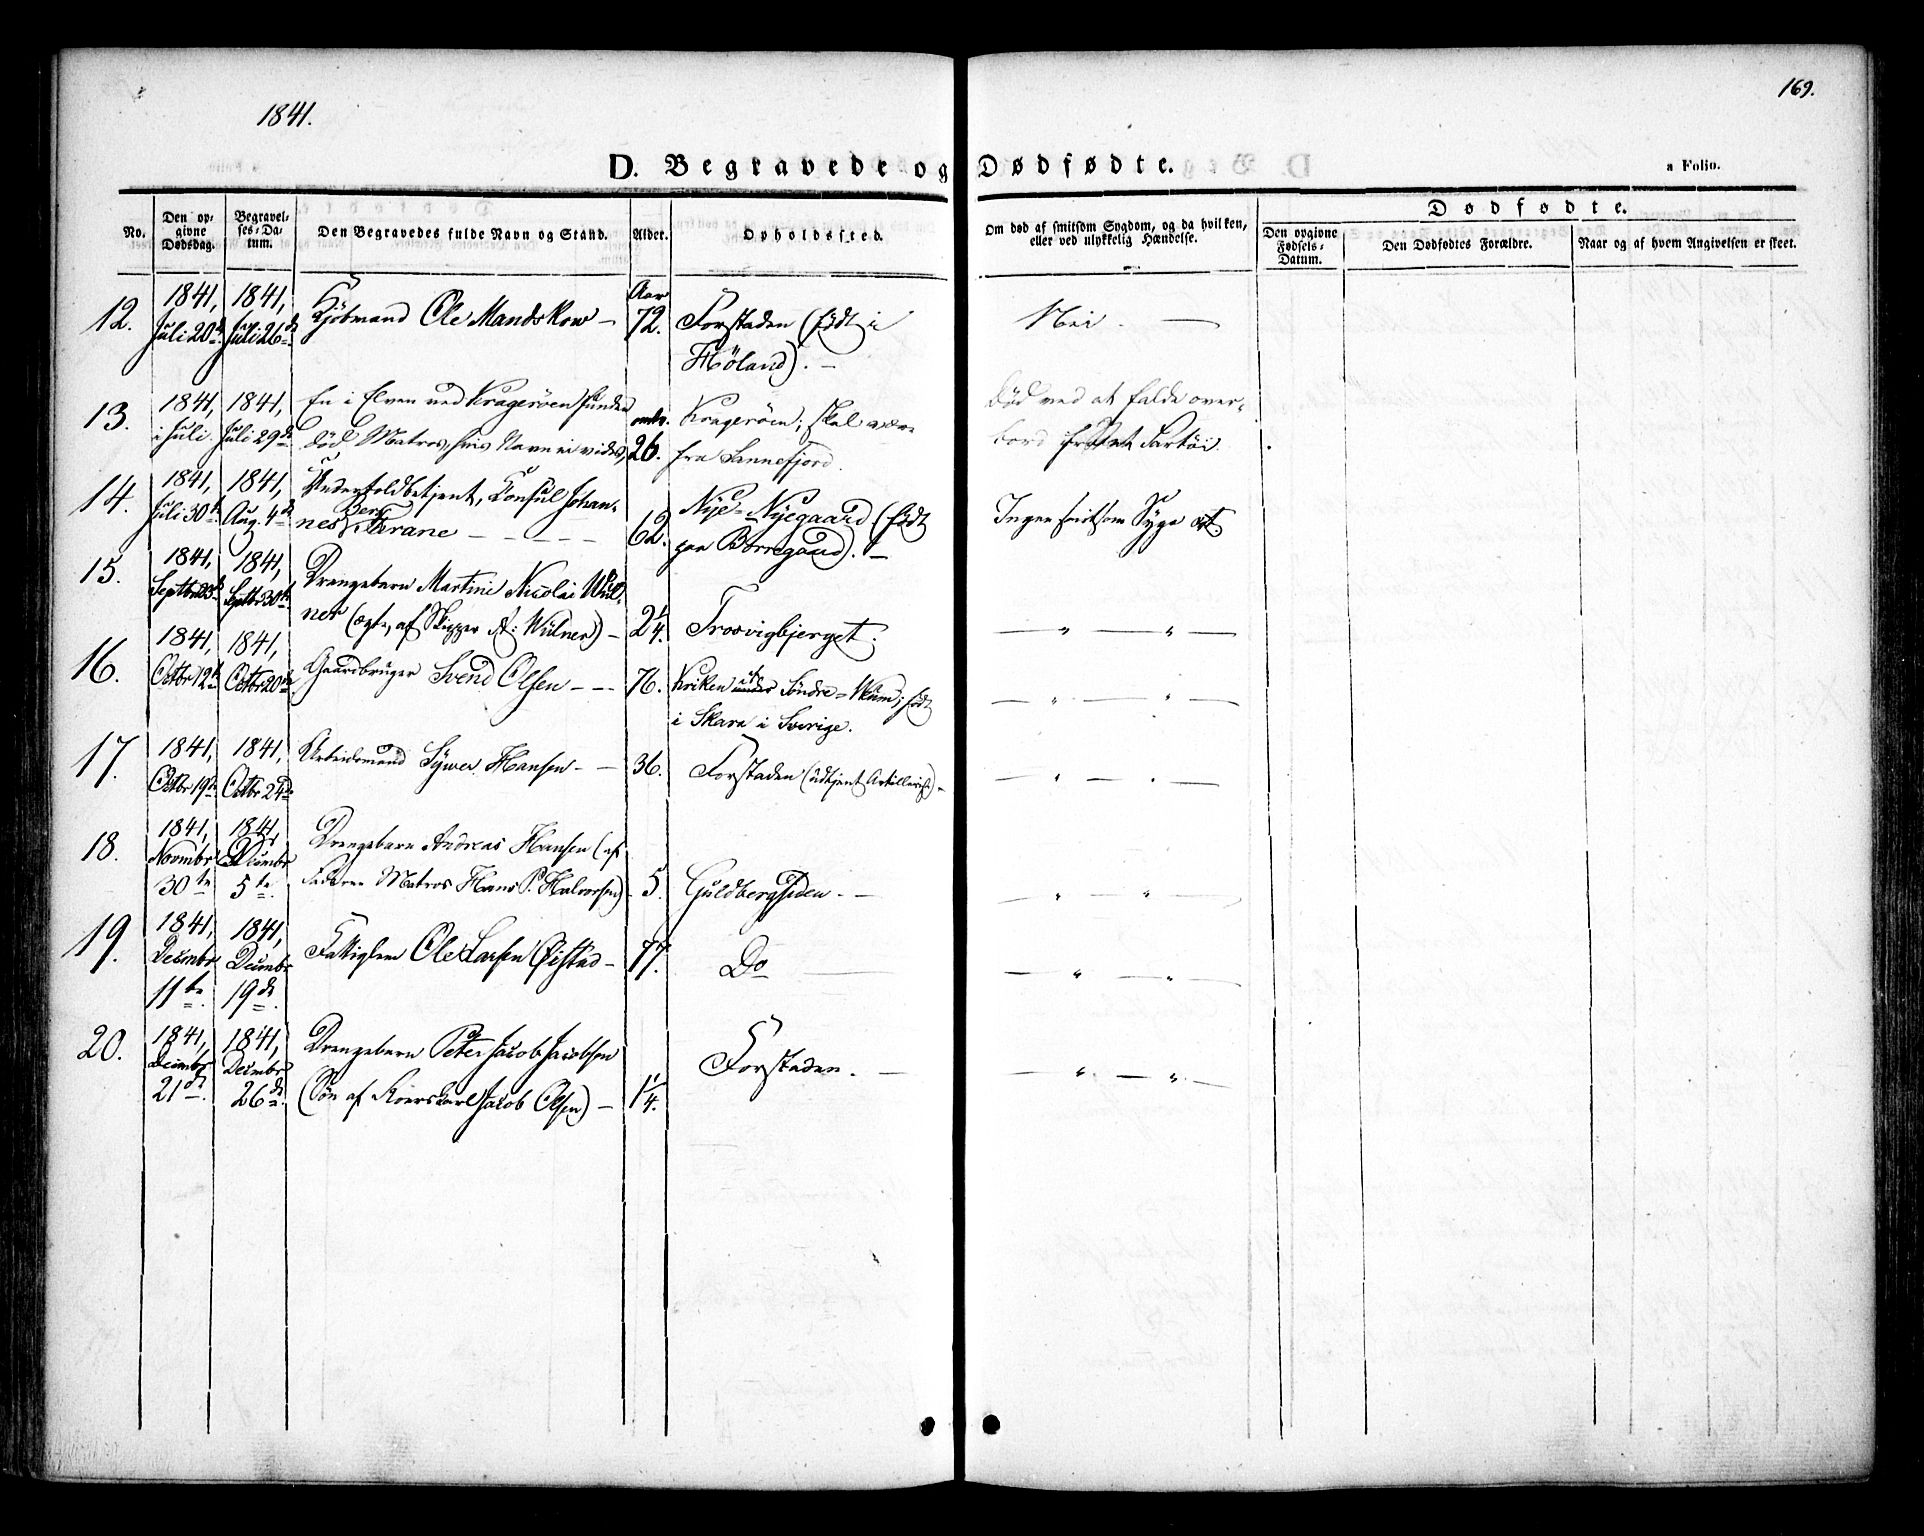 169.
1841.
D. Begravede og Dødfødte.
a Folio.
No.
Den op-
givne
Dødsdag.
Begravel-
ses-Da-
tum.
Den Begravedes fulde Navn og Stand.
Alder.
Opholdssted.
Om død af smitsom Sygdom, og da hvilken,
eller ved ulykkelig Hændelse.
Dødfødte.
Den opgivne
Fødsels-
Datum.
Den Dødfødtes Forældre.
Naar og af hvem Angivelsen er skeet.
12.
1841,
Juli 20de
1841,
Juli 26de
Kjöbmand Ole Mandskow —
Aar
72.
Forstaden (född i
Höland). —
Nei. —
13.
1841,
i Juli.
1841,
Juli 29de
En i Elven ved Kragerøen funden
død Matros, hvis Navn ei vides,
omtr.
26.
Kragerøen; skal være
fra Sannefjord.
død ved at falde over-
bord fra et Fartöi.
14.
1841,
Juli 30te
1841,
Aug. 4de
Undertoldbetjent, Consul Johan-
nes Krane — — — — —
62.
Nye-Nyegaard (född
paa Borregaard). —
Ingen smitsom Syge
15.
1841,
Septbr 23de
1841,
Septbr 30te
Drengebarn Martini Nicolai Wül-
ner (ægte, af Skipper A: Wülner) —
2 1/4.
Trosvigbjerget.
— " — " —
16.
1841,
Octbr 12te
1841,
Octbr 20de
Gaardbruger Svend Olsen — — —
76.
Kriken under Söndre-Kam; född
i Skara i Sverige.
— " — " —
17.
1841,
Octbr 19de
1841,
Octbr 24de
Arbeidsmand Syver Hansen — —
36.
Forstaden (udtjent Artillerist) —
— " — " —
18.
1841,
Novmbr
30te
1841,
Decmbr
5te
Drengebarn Andreas Hansen (af
Matros Hans P. Halvorsen)
5.
Guldbergsiden. —
— " — " —
19.
1841,
Decmbr
11te
1841,
Decmbr
19de
Fattiglem Ole Larsen Øistad —
77.
Do —
— " — " —
20.
1841,
Decmbr
21de
1841,
Decmbr
26de
Drengebarn Peter Jacob Jacobsen
(Sön af Kjörskarl Jacob Olsen) —
1 1/4.
Forstaden. —
— " — " —